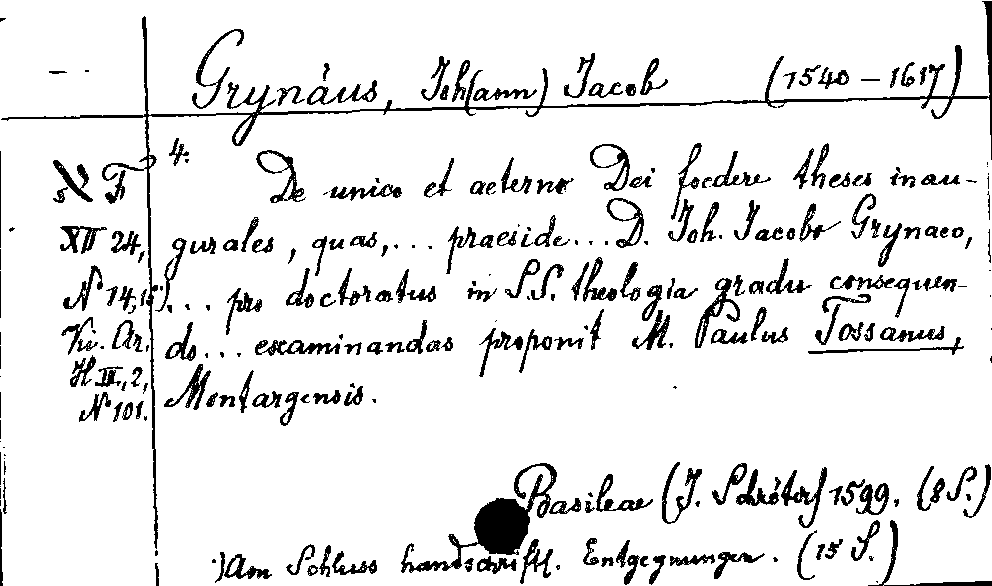 Grynäus, Joh(ann) Jacob (1540 – 1617)
4:
De unico et aeterno Dei foedere theses inau-
gurales, quas, ... praeside ... D. Joh. Jacobo Grynaeo,
... pro doctoratus in S.S. theologia gradu consequen-
do ... examinandas proponit M. Paulus Tossanus,
Montargensis.
XII 24,
N° 14,15*)
Ki. Ar.
H III, 2,
N° 101.
Basileae (J. Schröter) 1599. (8 S.)
*) Am Schluss handschriftl. Entgegnungen. (15 S.)